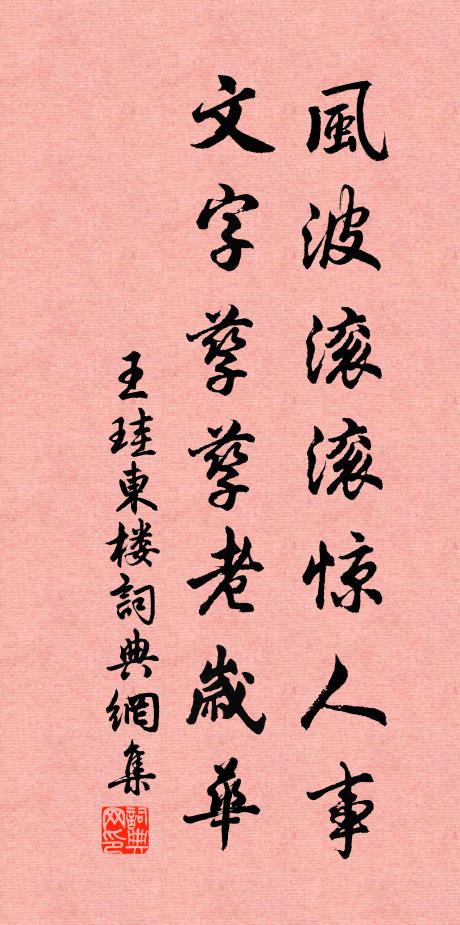 風波滚滚惊人事
文字孳孳老歲華
王珪東楼詞典網集
詞典
网印